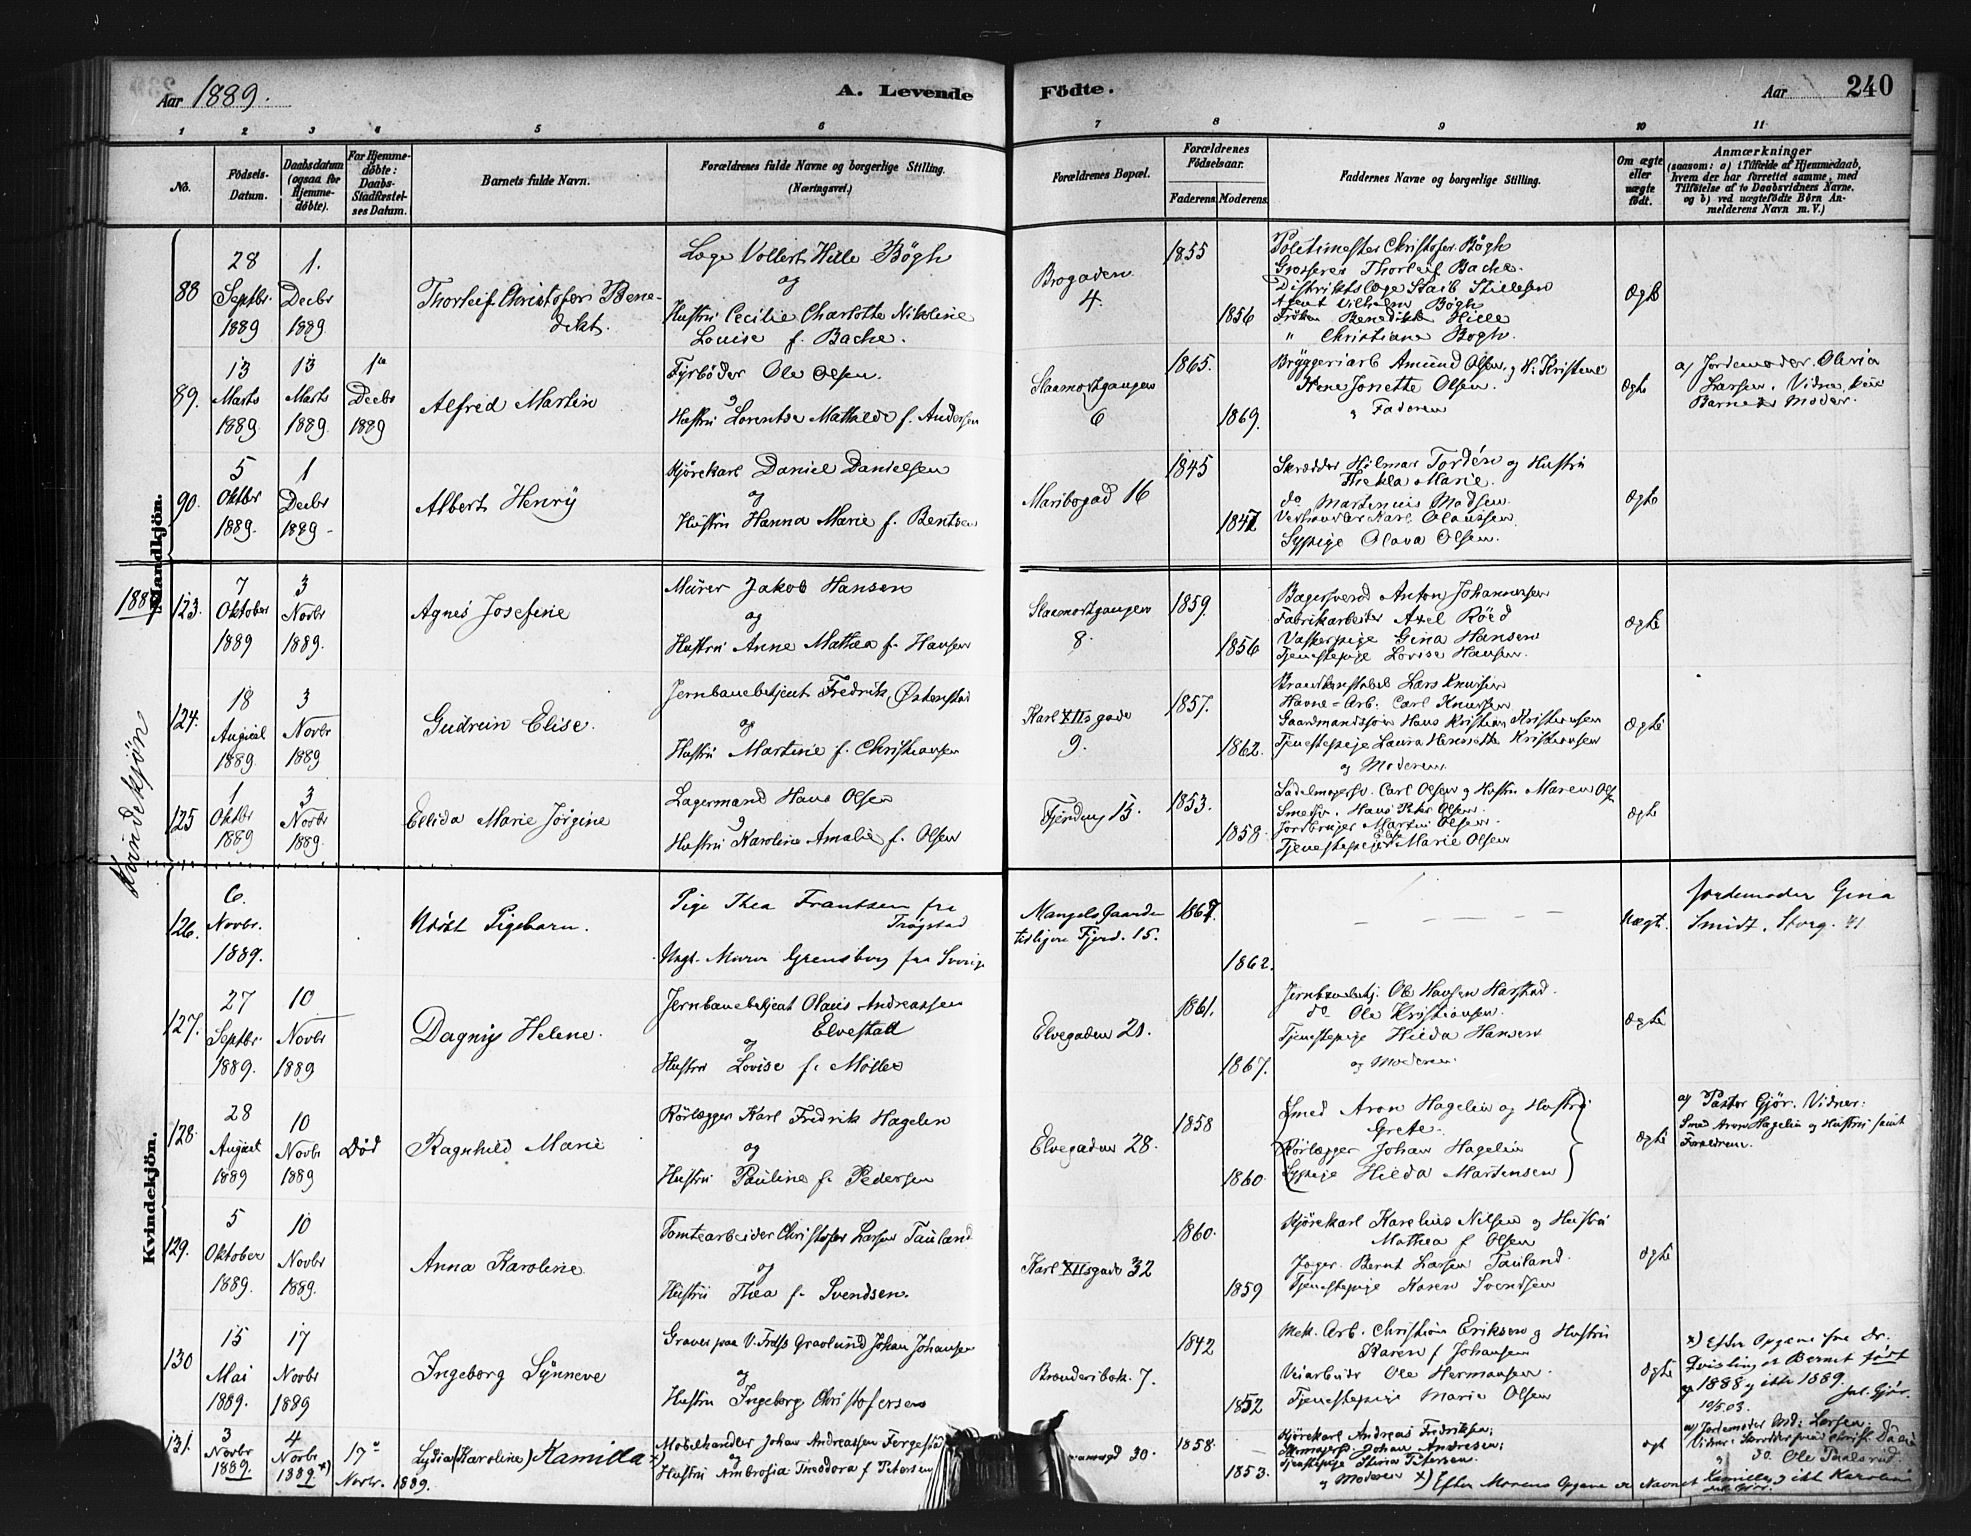 Aar 1889.
A. Levende
Fødte.
Aar
240
1 2 3 4 5 6 7 8 9 10 11
No.
Fødsels-
Datum.
Daabsdatum
(ogsaa for
Hjemme-
døbte).
For Hjemme-
døbte:
Daabs-
Stadfæstel-
ses Datum.
Barnets fulde Navn.
Forældrenes fulde Navne og borgerlige Stilling.
(Næringsvei.)
Forældrenes Bopæl.
Forældrenes
Fødselsaar.
Faderens. Moderens.
Faddernes Navne og borgerlige Stilling.
Om ægte
eller
uægte
født.
Anmærkninger
(saasom: a) i Tilfælde af Hjemmedaab,
hvem der har forrettet samme, med
Tilføielse af to Daabsvidners Navne,
og b) ved uægtefødte Børn An-
melderens Navn m. V.)
Mandkjøn.
88
28
Septbr.
1889
1.
Decbr
1889
Thorleif Christofer Bene-
dikt.
Læge Vollert Hille Bøgh
og
Hustru Cecilie Charlotte Nikoline
Louise f. Bache.
Brogaden
4.
1855
1856
Politimester Christofer Bøgh
Grosserer Thorleif Bache.
Distriktslæge Stillesen
Agent Vilhelm Bøgh
Frøken Benedikte Hille
" Christiane Bøgh.
Ægte
89.
13
Marts
1889
13
Marts
1889.
1ste
Decbr
1889
Alfred Martin
Fyrbøder Ole Olsen.
og
Hustru Lorentse Mathilde f. Andersen
6
1865.
1869.
Bryggeriarb Amund Olsen, og H. Kristene
Jonette Olsen.
og Faderen
Ægte
a) Jordemoder Olivia
Larsen. Vidne, kun
Barnets Moder.
90.
5
Oktbr
1889.
1
Decbr
1889
Albert Henry
Kjørekarl Daniel Danielsen
og
Hustru Hanna Marie f. Bentsen
Maribogad 16
1845
1847
Skrædder Hilmar Tordén og Hustru
Thekla Marie.
do Martenius Madsen
Karl Olaussen
Sypige Olava Olsen.
Ægte
Kvindekjøn
123.
7
Oktober
1889
3
Novbr
1889.
Agnes Josefine
Murer Jakob Hansen
og
Hustru Anne Mathea f. Hansen
8.
1859.
1856
Bagersvend Anton Johannesen
Fabrikarbeider Axel Røed
Vaskerpige Gina Hansen
Tjenestepige Lovise Hansen.
Ægte
124.
18
August
1889.
3
Novbr
1889
Gudrun Elise.
Jernbanebetjent Fredrik Østenstad
og
Hustru Martine f. Christiansen
Karl XIIsgade
9.
1857.
1862.
Brandkonstabel Lars Knutsen
Havne-Arb. Carl Knutsen
Gaardmandssøn Hans Kristian Kristiansen
Tjenestepige Laura Henriette Kristiansen
og Moderen
Ægte
125
1
Oktbr
1889
3
Novbr
1889.
Ellida Marie Jørgine
Lagermand Hans Olsen
og
Hustru Karoline Amalie f. Olsen
Fjerding 15.
1853.
1858.
Sadelmagersv. Carl Olsen og Hustru Maren Ols
Smedsv. Hans Peter Olsen.
Jordbruger Martin Olsen.
Tjenestepige Elise Marie Olsen
Ægte
126.
6.
Novbr.
1889.
Udøbt Pigebarn.
Pige Thea Frantsen fra
Trøgstad
Ungk. Murer Grensberg fra Sverige
Mangels Gaarden
tidligere Fjerd. 15.
1867.
1862.
Uægt.
Jordemoder Gina
Smidt, Storg. 41
127.
27
Septbr.
1889.
10
Novbr
1889
Dagny Helene.
Jernbanebetjent Olaus Andreassen
Elvestad
og
Hustru Lovise f. Møller
Elvegaden 21.
1861.
1867.
Jernbanebetj. Ole Hansen Harstad.
do Ole Kristiansen.
Tjenestepige Hilda Hansen
og Moderen.
Ægte
Kvindekjøn.
128.
28
August
1889
10
Novbr
1889
Død
Ragnhild Marie
Rørlægger Karl Fredrik Hagelin
og
Hustru Pauline f. Pedersen
Elvegaden 28.
1858
1860
Smed Aron Hagelin og Hustru
Grete.
Rørlægger Johan Hagelin
Sypige Hilda Martensen
Ægte
a) Pastor Gjør. Vidner:
Smed Aron Hagelin og Hustru samt
Forældrene.
129.
5
Oktober
1889.
10
Novbr
1889.
Anna Karoline
Tomtearbeider Christofer Larsen Tauland
og
Hustru Thea f. Svendsen.
Karl XIIsgade 32
1860.
1859
Kjørekarl Karelius Nilsen og Hustru
Mathea f Olsen
Bernt Larsen Tauland.
Tjenestepige Karen Svendsen
Ægte
130
15
Mai
1889.
17
Novbr
1889
Ingeborg Synneve
Graver paa V. Frelss Gravlund Johan Johansen
og
Hustru Ingeborg Christofersen
7.
1842
1852
Mek. Arb. Christian Eriksen og Hustru
Karen f Johansen
Veiarbeider Ole Hermansen.
Tjenestepige Marie Olsen
Ægte
x) Efter Opgave fra Dr.
Quisling er Barnet født
1888 og ikke 1889.
10/5 03. Jul. Gjør.
131.
3
Novbr
1889.
4
Novbr
1889 x)
17de
Novbr. 1889.
Lydia (Karoline) Kamilla x)
Møbelhandler Johan Andreassen Fergestad
og
Hustru Ambrosia Theodora f Petersen
30.
1858.
1853.
Kjørekarl Andreas Fredriksen;
Johan Andresen;
Tjenestepige Petersen.
og Moderen x) Efter Morens Opgave er Navnet Kamilla og ikke Karoline
Ægt
a) Jordemoder And: Larsen.
og do. Ole Paulsrud